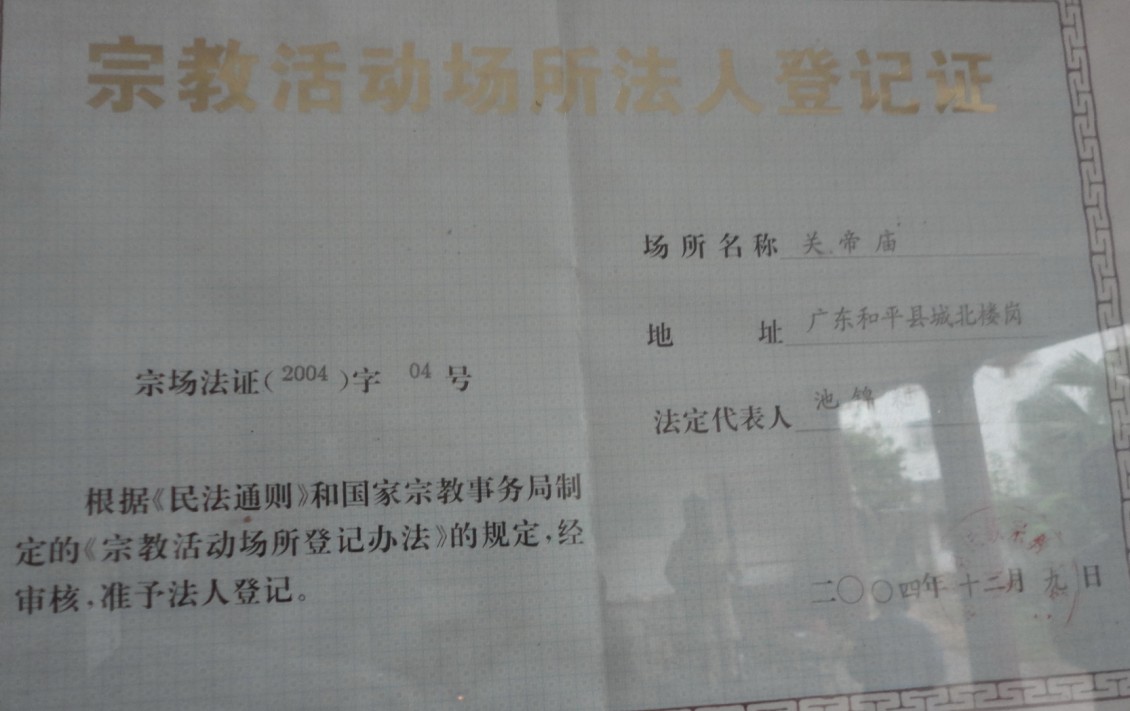 宗教活动场所法人登记证
场所名称 关帝庙
地址 广东和平县城北楼岗
宗场法证(2004)字 04 号
法定代表人 池锦
根据《民法通则》和国家宗教事务局制
定的《宗教活动场所登记办法》的规定,经
审核,准予法人登记。
二〇〇四年十二月九日